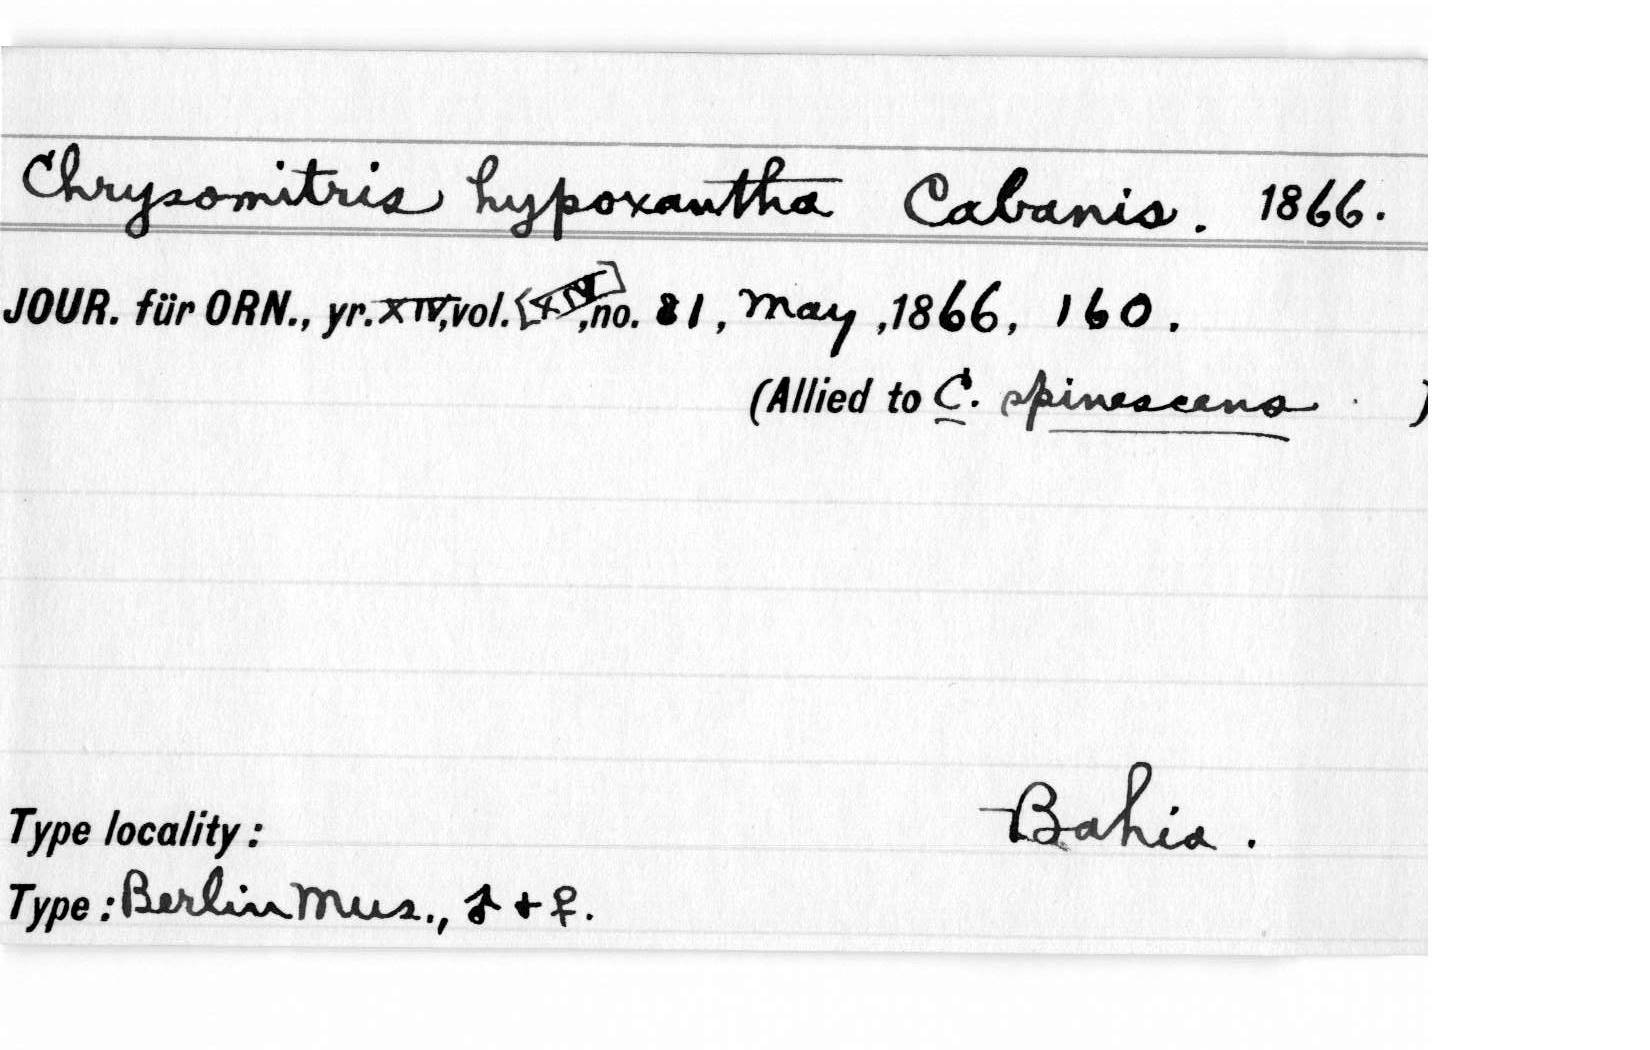 Chrysomitris hypoxantha Cabanis. 1866.
JOUR. für ORN., yr. XIV, vol. [XIV], no. 81, May, 1866, 160.
(Allied to C. spinescens )
Type locality: Bahia.
Type: Berlin Mus., ♂ + ♀.